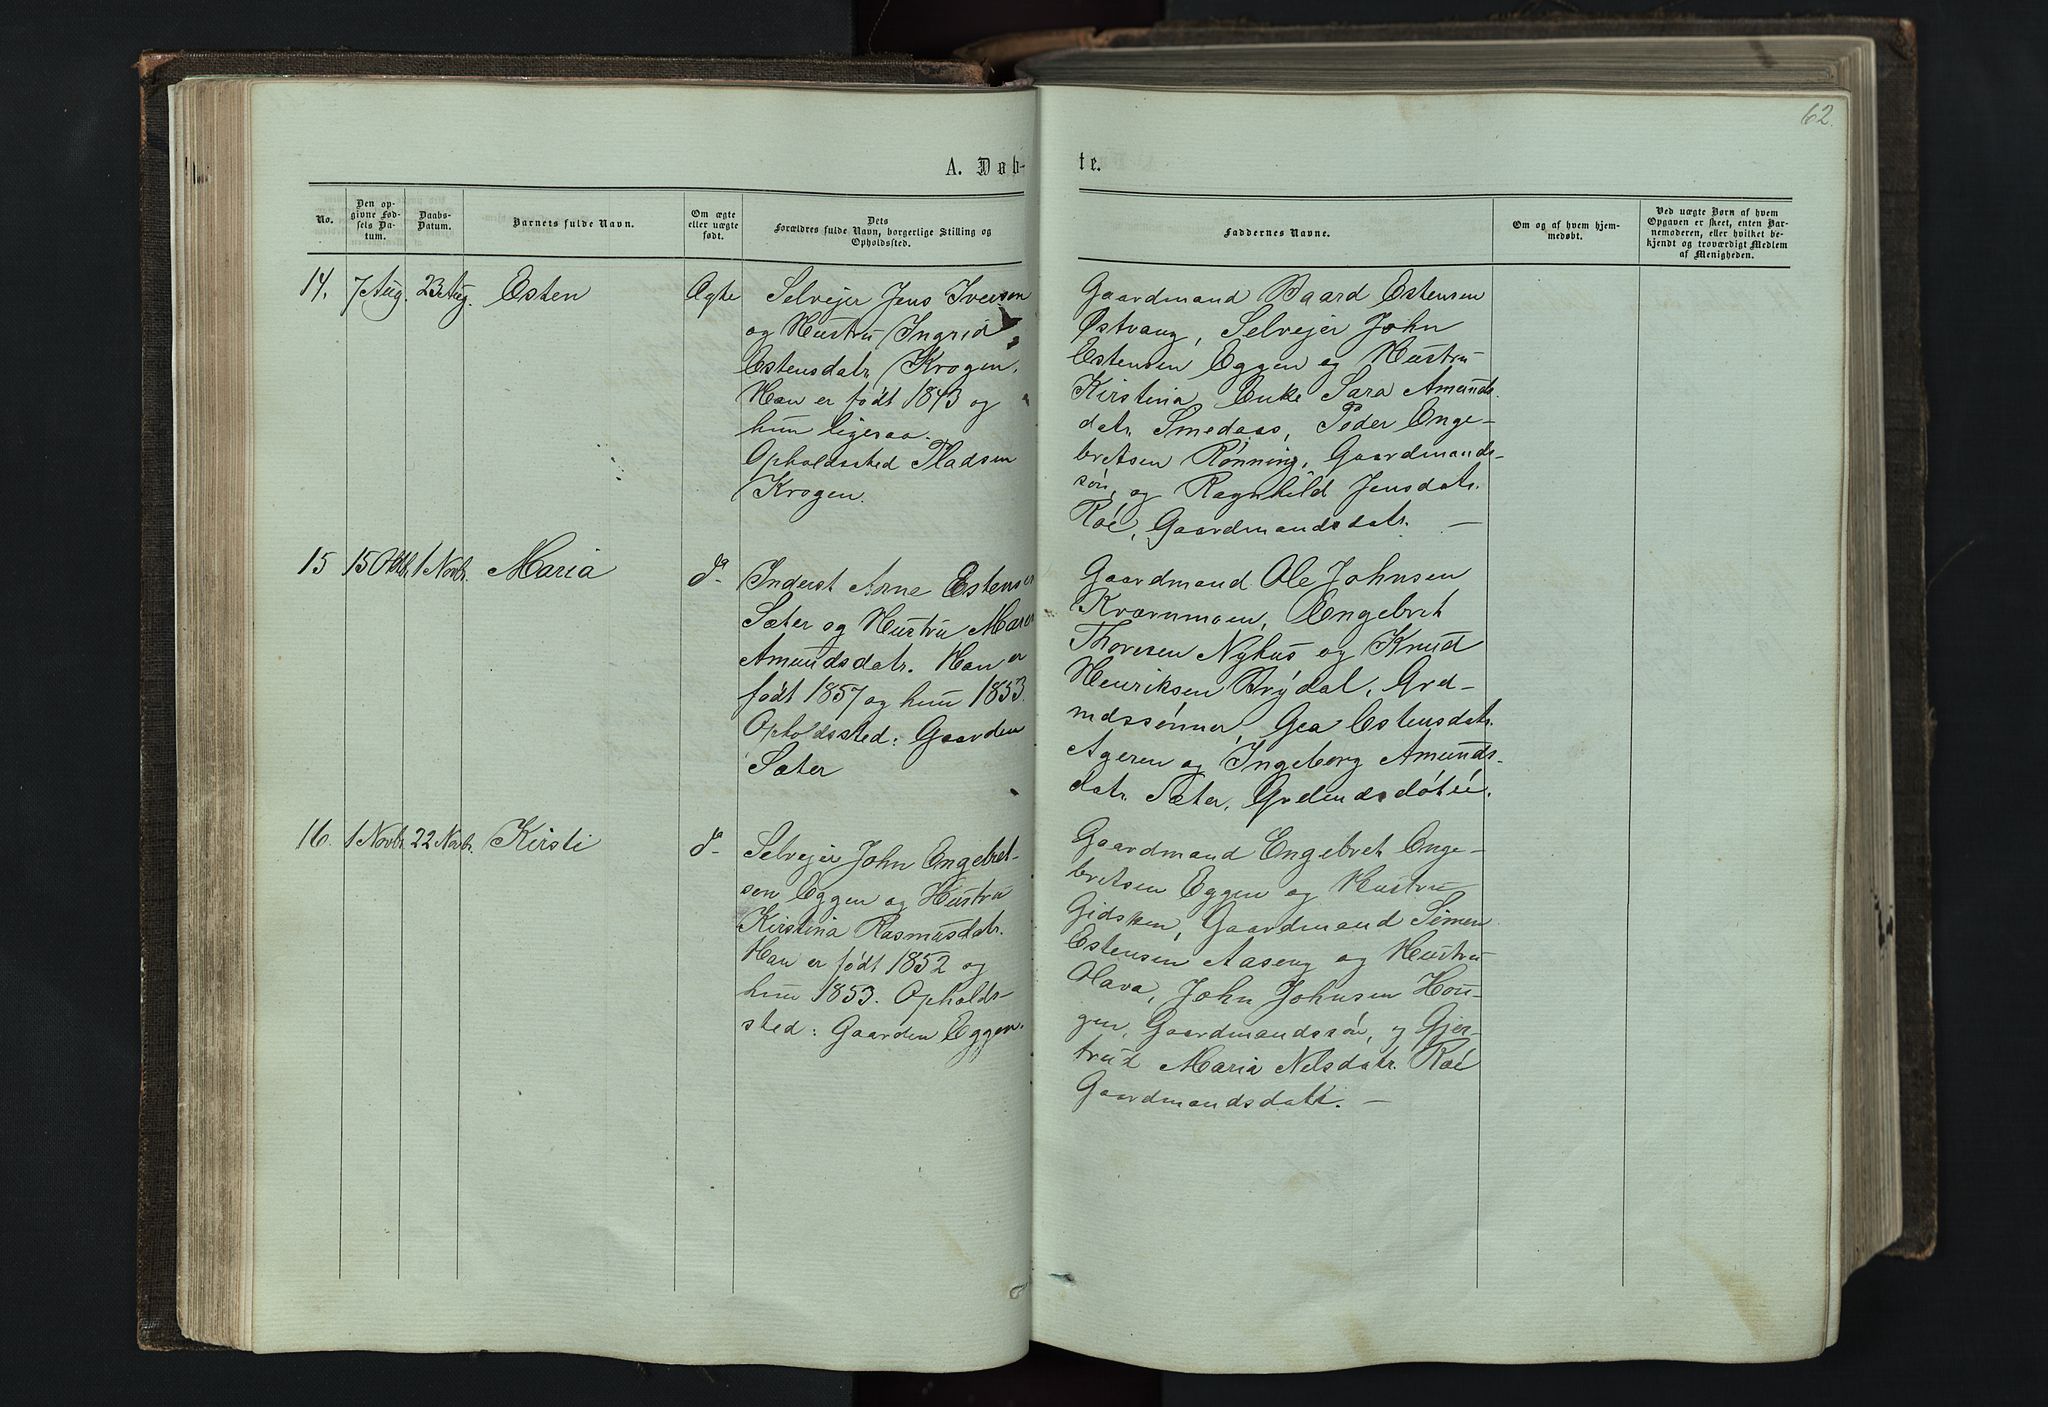 62.
A. Døb-
te.
No.
Den op-
givne Fød-
sels Da-
tum.
Daabs-
Datum.
Barnets fulde Navn.
Om ægte
eller uægte
født.
Dets
Forældres fulde Navn, borgerlige Stilling og
Opholdssted.
Faddernes Navne.
Om og af hvem hjem-
medøbt.
Ved uægte Børn af hvem
Opgaven er skeet, enten Bar-
nemoderen, eller hvilket be-
kjendt og troværdigt Medlem
af Menigheden.
14. 7 Aug. 23 Aug. Esten Ægte
Selvejer Jens Iversen
og Hustru Ingrid
Estensdatr. Krogen.
Han er født 1843 og
hun ligesaa.
Opholdssted Pladsen
Krogen.
Gaardmand Baard Estensen
Østvang, Selvejer John
Estensen Eggen og Hustru
Kirstina, Enke Sara Amunds-
datr. Smedaas, Peder Enge-
bretsen Rønning, Gaardmands-
søn, og Ragnhild Jensdatr.
Roe, Gaardmandsdatr. —
15 15 Oktbr. 1 Novbr. Maria do
Inderst Arne Estensen
Sæter og Hustru Maren
Amundsdatr. Han er
født 1857 og hun 1853.
Opholdssted: Gaarden
Sæter
Gaardmand Ole Johnsen
Kværnmoen, Engebret
Thoresen Nyhus og Knud
Henriksen Brydal, Grd-
mdssønner, Gea Estensdatr.
Ageren og Ingeborg Amunds-
datr. Sæter,
16. 1 Novbr. 22 Novbr. Kirsti do
Selvejer John Engebret-
sen Eggen og Hustru
Kirstina Rasmusdatr.
Han er født 1852 og
hun 1853. Opholds-
sted: Gaarden Eggen.
Gaardmand Engebret Enge-
bretsen Eggen og Hustru
Gidsken, Gaardmand Simen
Estensen Aaseng og Hustru
Olava, John Johnsen Hou-
gen, Gaardmandssøn, og Gjer-
trud Maria Nelsdatr. Roe
Gaardmandsdatr. —